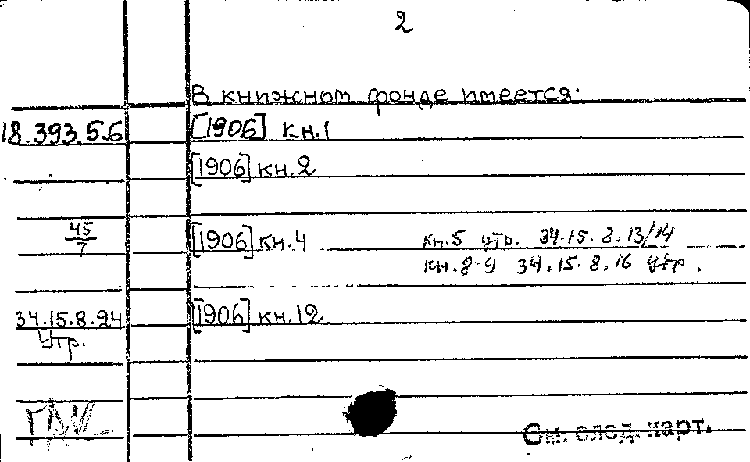 2
В книжном фонде имеется:
18.393.5.6 [1906] кн.1
[1906] кн.2
45/7 [1906] кн.4 кн.5 утр. 34.15.8.13/14
кн.8-9 34.15.8.16 утр.
34.15.8.24 [1906] кн.12
утр.
См. след. карт.